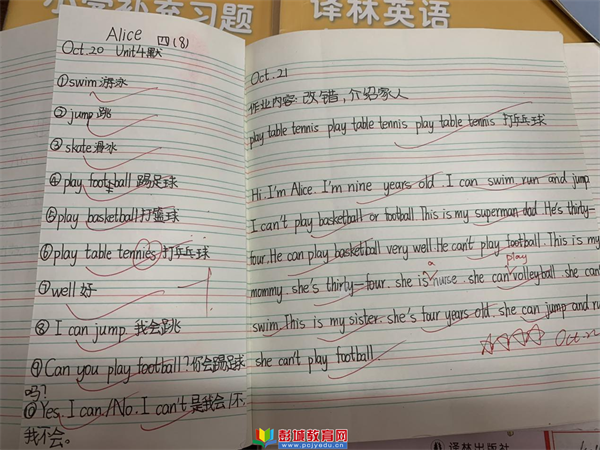 小学补充习题
译林英语
Alice 四(8)
Oct.20 Unit4默
①swim 游泳
②jump 跳
③skate 滑冰
④play football 踢足球
⑤play basketball 打篮球
⑥play table tennies 打乒乓球
⑦well 好
⑧I can jump 我会跳
⑨Can you play football? 你会踢足球
吗?
⑩Yes, I can./No. I can't 是我会/不,
我不会。
Oct.21
作业内容: 改错,介绍家人
play table tennis play table tennis play table tennis 打乒乓球
Hi. I'm Alice. I'm nine years old. I can swim run and jump
I can't play basketball or football. This is my superman dad. He's thirty-
four. He can play basketball very well. He can't play football. This is my
mommy. she's thirty-four. she is a nurse. she can play volleyball. she can
swim. This is my sister. she's four years old. she can jump and ru
she can't play football
Oct.22
彭城教育网
www.pcjyedu.cn
译林出版社